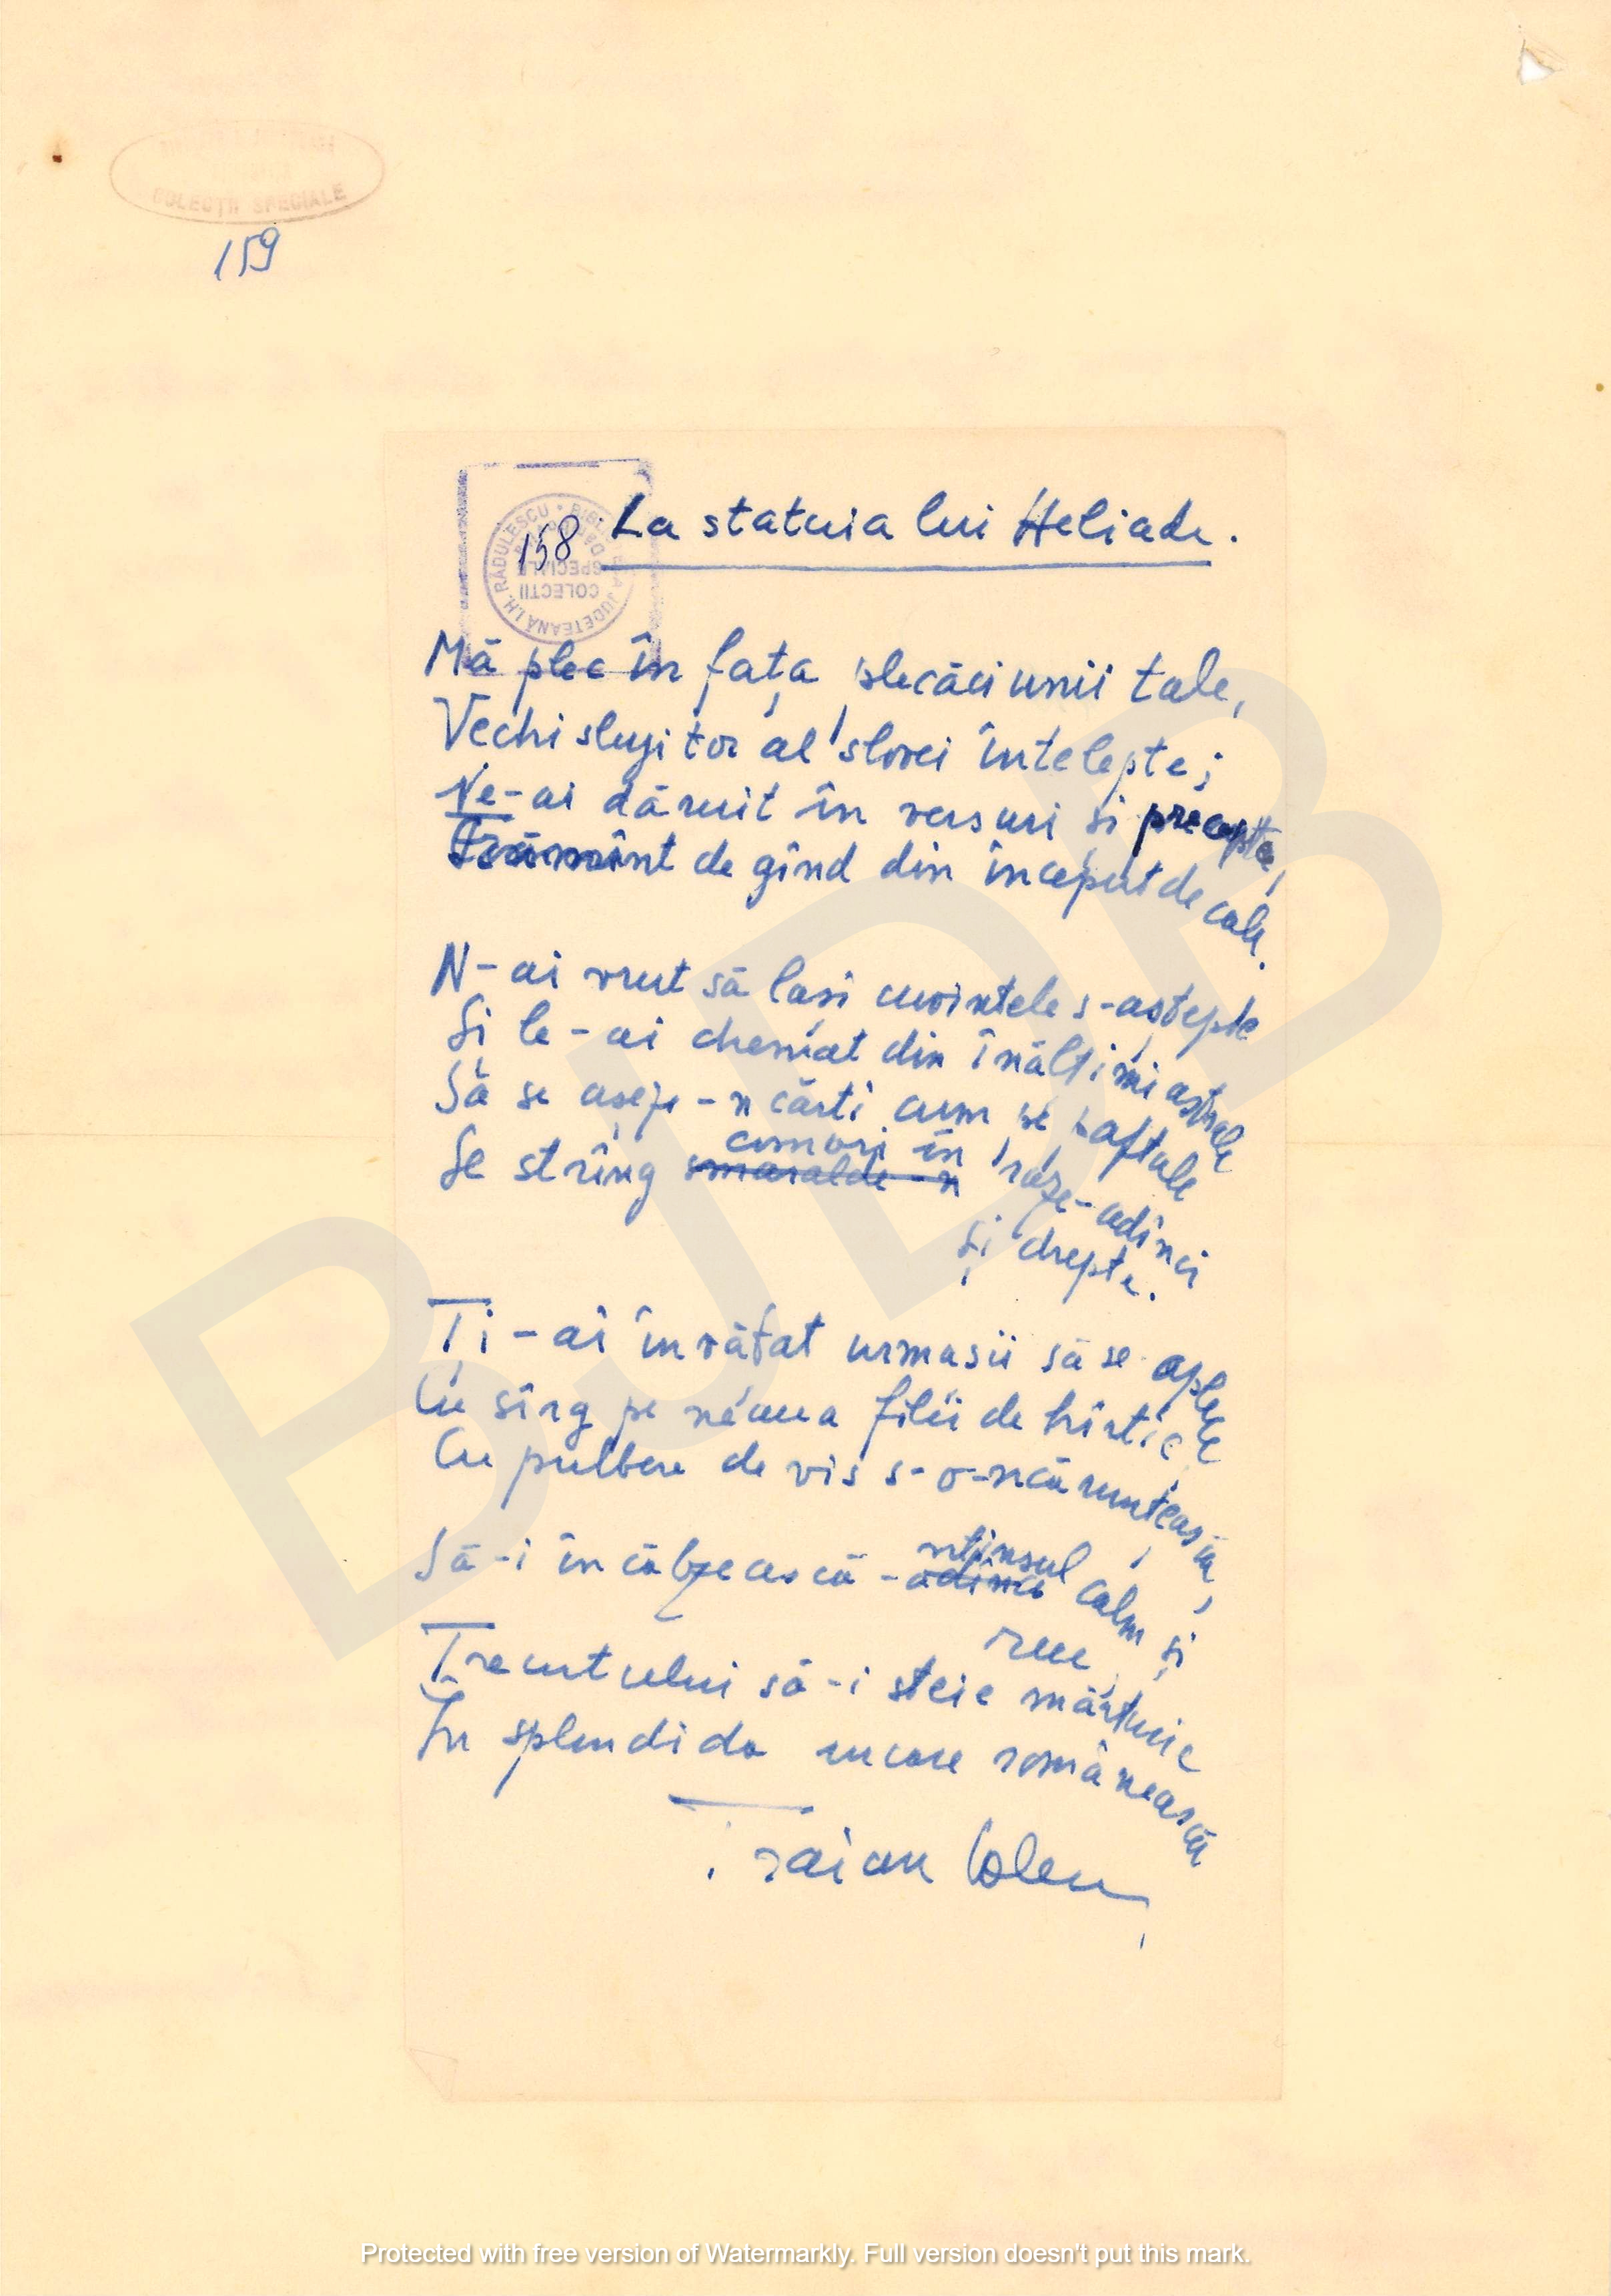 COLECȚII SPECIALE
159
158
RĂDULESCU • BIBL
JUDEȚEANĂ I.H.
COLECȚII
SPECIALE
La statuia lui Heliade.
Mă plec în fața plecăciunii tale,
Vechi slujitor al slovei întelepte;
Ne-ai dăruit în versuri și precepte,
Frămînt de gînd din început de cale.
N-ai vrut să lași cuvintele s-aștepte
Și le-ai chemat din înălțimi astrale
Să se așeze-n cărți cum pe paftale
Se strîng smaralde-n comori în raze-adînci
și drepte.
Ți-ai învățat urmașii să se aplece
Cu sîrg pe neaua filii de hîrtie,
Cu pulbere de vis s-o-ncărunțească,
Să-i încălzească-adînc ntinsul calm și
rece,
Trecutului să-i steie mărturie
În splendida ucare românească
Traian
BJDB
Protected with free version of Watermarkly. Full version doesn't put this mark.